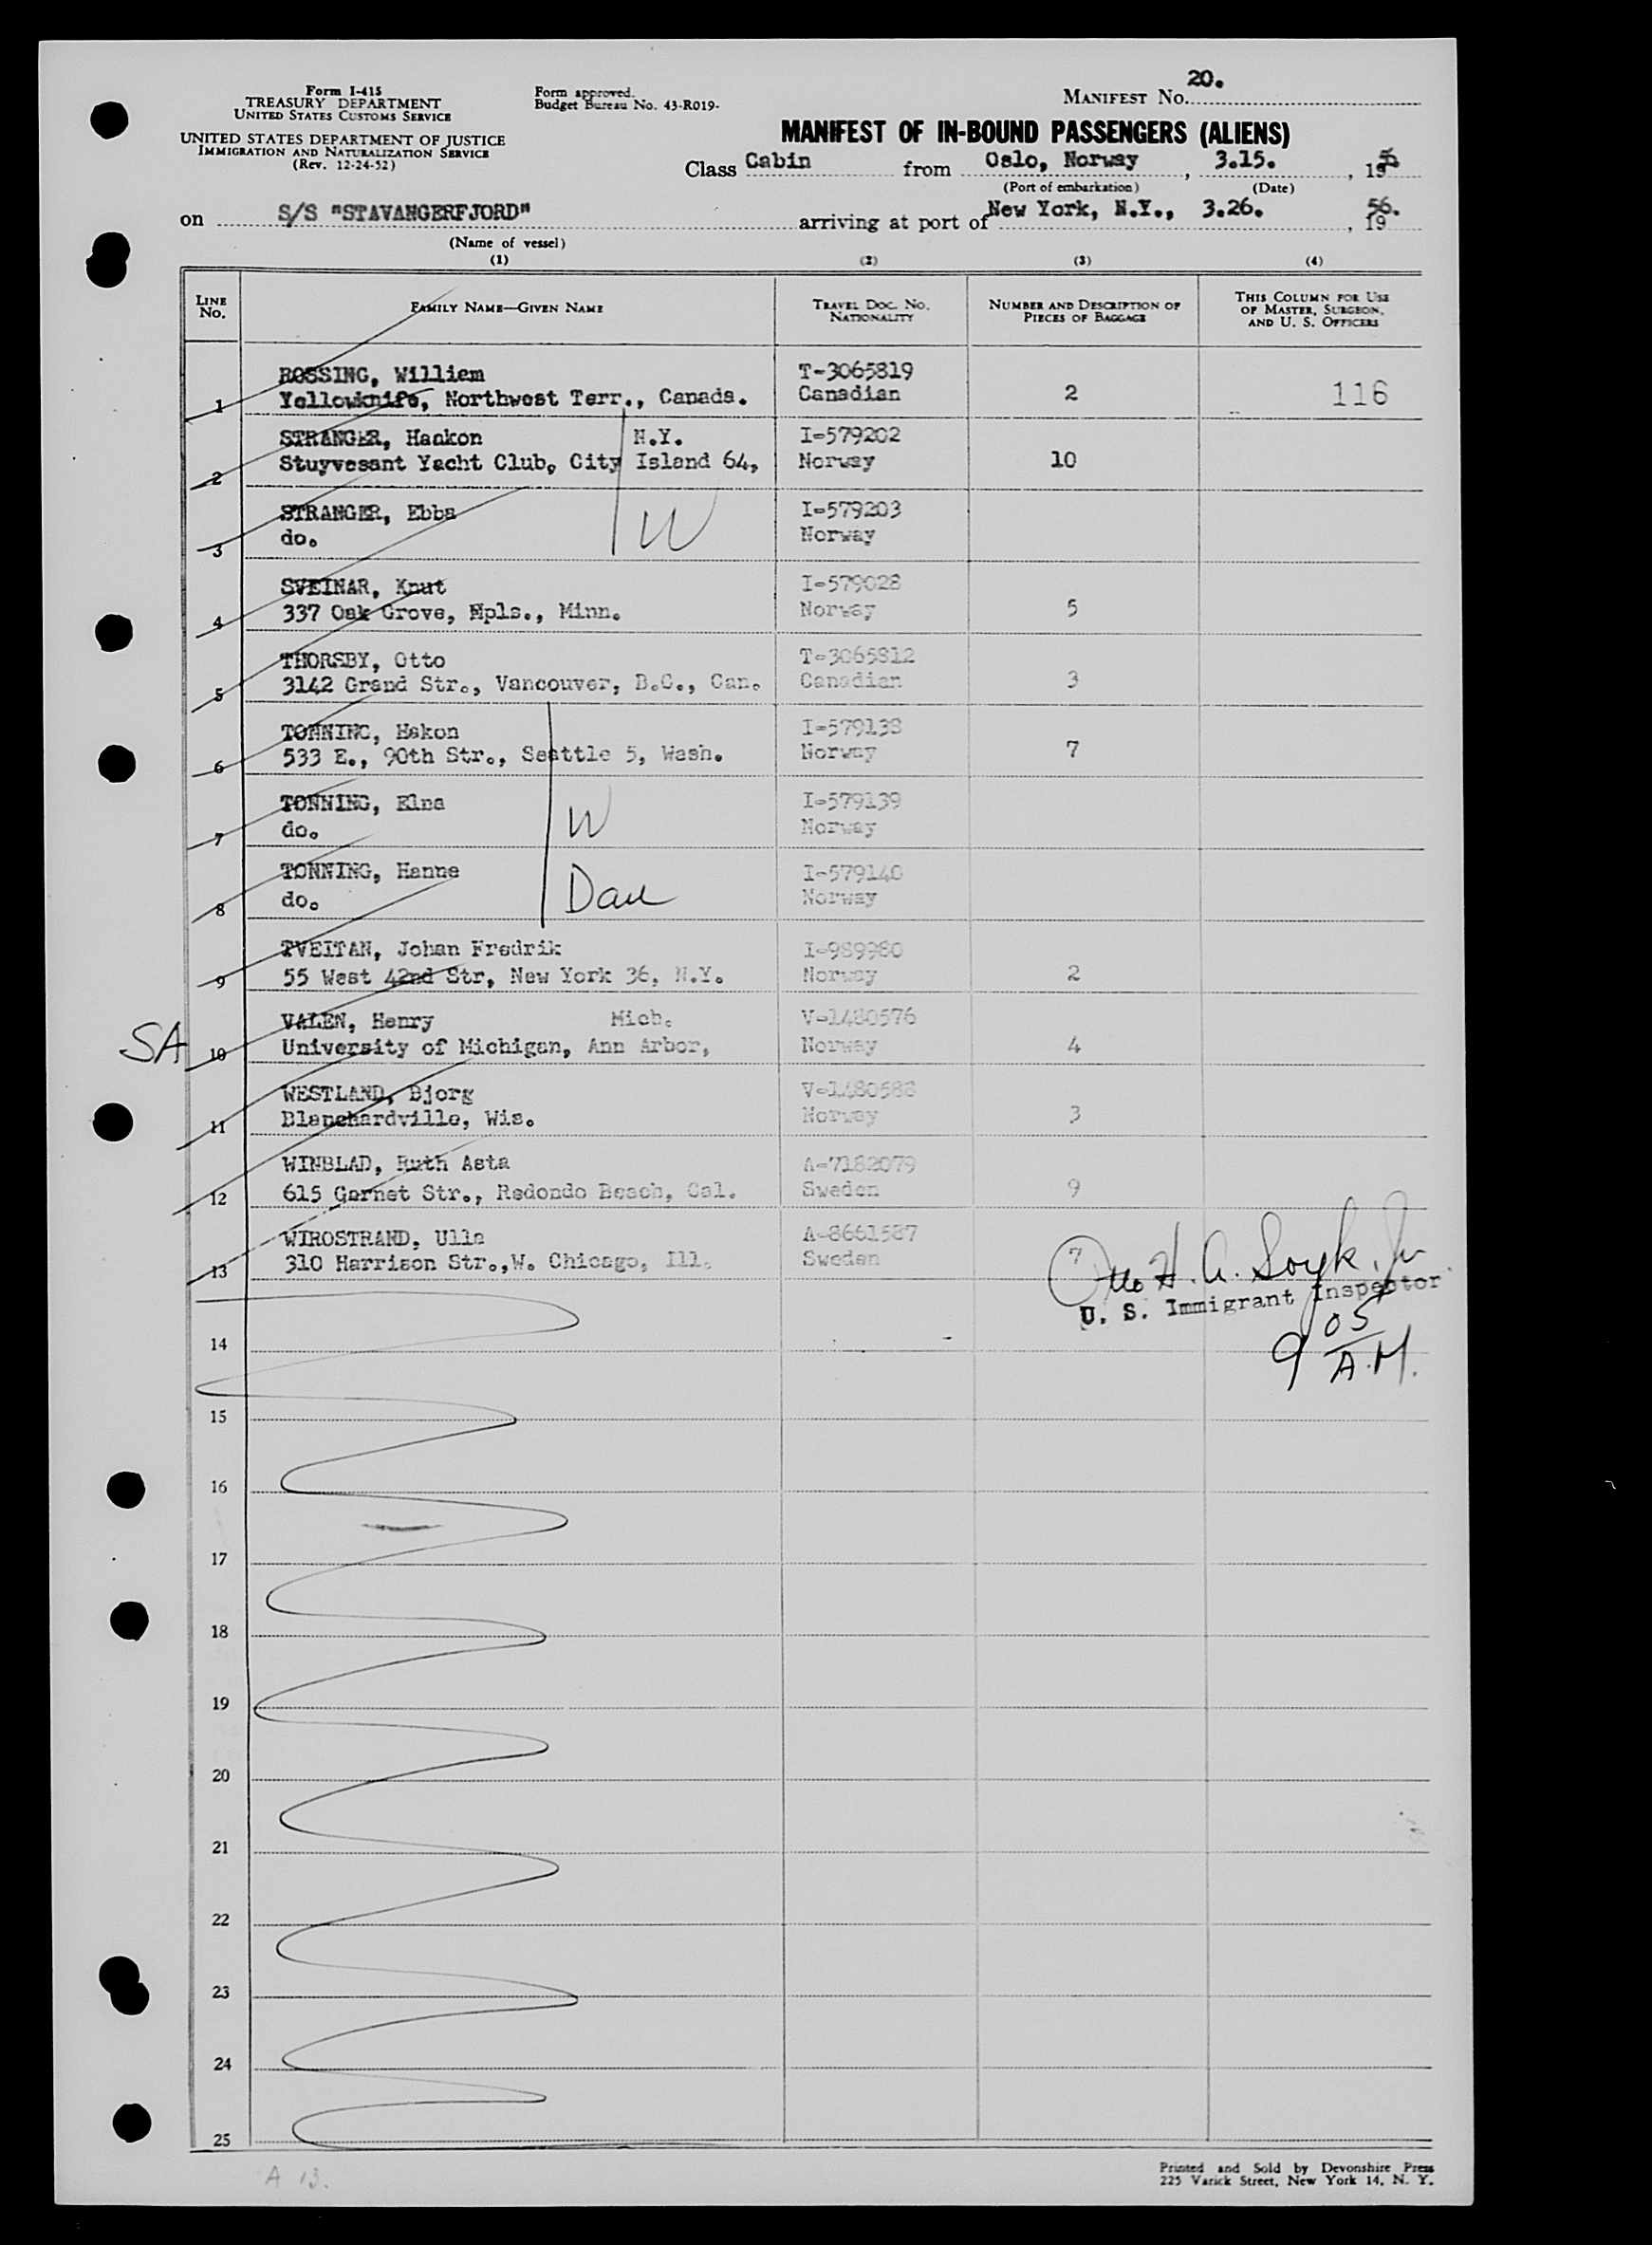 Form I-415
TREASURY DEPARTMENT
UNITED STATES CUSTOMS SERVICE
UNITED STATES DEPARTMENT OF JUSTICE
IMMIGRATION AND NATURALIZATION SERVICE
(Rev. 12-24-52)
Form approved.
Budget Bureau No. 43-R019-
MANIFEST No. 20.
MANIFEST OF IN-BOUND PASSENGERS (ALIENS)
Class Cabin from Oslo, Norway, 3.15., 19
(Port of embarkation) (Date)
on S/S "STAVANGERFJORD" arriving at port of New York, N.Y., 3.26., 1956.
(Name of vessel)
(1) (2) (3) (4)
LINE No. FAMILY NAME—GIVEN NAME TRAVEL DOC. No. NATIONALITY NUMBER AND DESCRIPTION OF PIECES OF BAGGAGE THIS COLUMN FOR USE OF MASTER, SURGEON, AND U. S. OFFICERS
ROSSING, William T-3065819
1 Yellowknife, Northwest Terr., Canada. Canadian 2 116
STRANGER, Haakon N.Y. I-579202
2 Stuyvesant Yacht Club, City Island 64, Norway 10
STRANGER, Ebba I-579203
3 do. W Norway
SVEINAR, Knut I-579028
4 337 Oak Grove, Mpls., Minn. Norway 5
THORSBY, Otto T-3065812
5 3142 Grand Str., Vancouver, B.C., Can. Canadian 3
TONNING, Hakon I-579138
6 533 E., 90th Str., Seattle 5, Wash. Norway 7
TONNING, Elna I-579139
7 do. W Norway
TONNING, Hanne I-579140
8 do. Dau Norway
TVEITAN, Johan Fredrik I-989980
9 55 West 42nd Str, New York 36, N.Y. Norway 2
VALEN, Henry Mich. V-1480576
SA 10 University of Michigan, Ann Arbor, Norway 4
WESTLAND, Bjorg V-1480588
11 Blanchardville, Wis. Norway 3
WINBLAD, Ruth Asta A-7182079
12 615 Garnet Str., Redondo Beach, Cal. Sweden 9
WIROSTRAND, Ulla A-8661587
13 310 Harrison Str.,W. Chicago, Ill. Sweden 7
Otto H. A. Soyk. Jr
U. S. Immigrant Inspector
9 05 A.M.
14
15
16
17
18
19
20
21
22
23
24
25
A 13.
Printed and Sold by Devonshire Press
225 Varick Street, New York 14, N. Y.